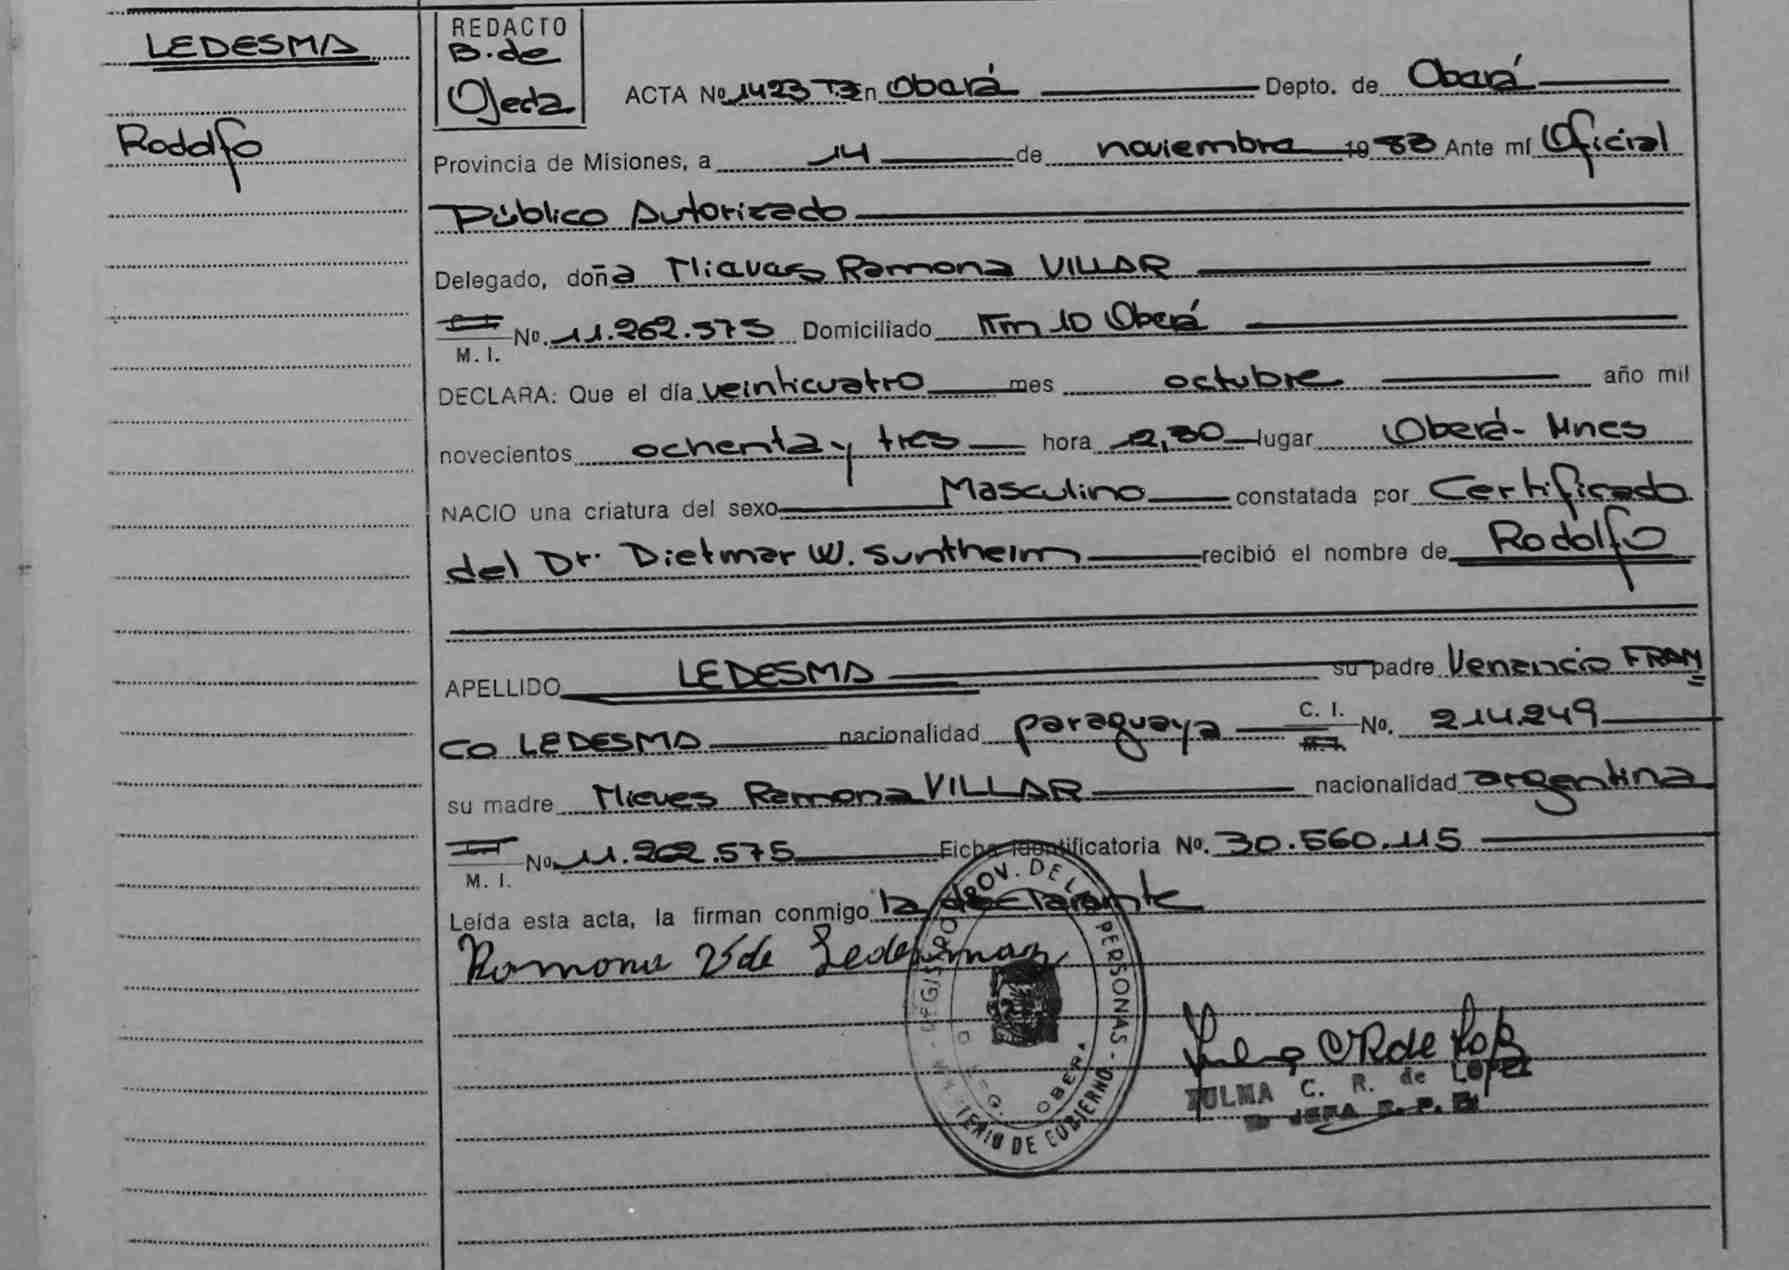 LEDESMA
Rodolfo
REDACTO
B. de
Ojeda
ACTA Nº 1423 T3 En Oberá Depto. de Oberá
Provincia de Misiones, a 14 de noviembre 1983 Ante mí Oficial
Público Autorizado
Delegado, doña Nieves Ramona VILLAR
M. I. Nº. 11.262.575 Domiciliado Km 10 Oberá
DECLARA: Que el día veinticuatro mes octubre año mil
novecientos ochenta y tres hora 2,30 lugar Oberá - Mnes
NACIO una criatura del sexo Masculino constatada por Certificado
del Dr. Dietmar W. Suntheim recibió el nombre de Rodolfo
APELLIDO LEDESMA su padre Venancio FRAN
CO LEDESMA nacionalidad paraguaya C. I. Nº. 214.249
su madre Nieves Ramona VILLAR nacionalidad argentina
M. I. Nº 11.262.575 Ficha Identificatoria Nº. 30.560.115
Leída esta acta, la firman conmigo la declarante
Ramona V de Ledesma
PROV. DE LAS PERSONAS - MINISTERIO DE GOBIERNO
OBERA
ZULMA C. R. de LOPEZ
JEFA